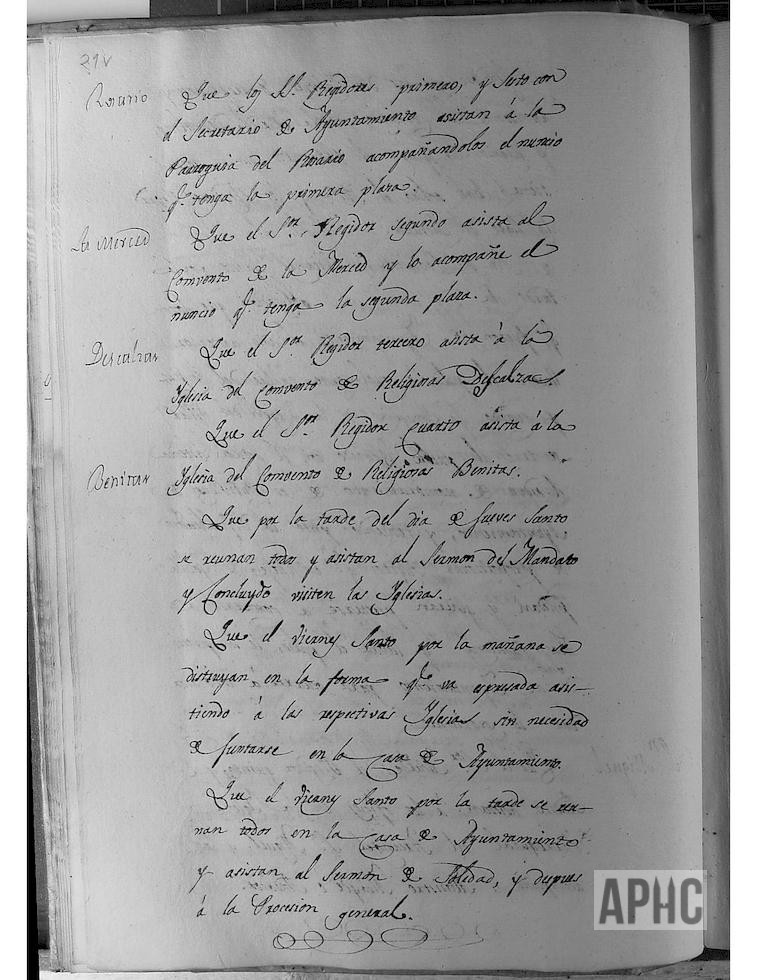 29v
Rosario
Que los SS. Regidores primero, y sesto con
el Secretario de Ayuntamiento asistan á la
Parroquia del Rosario acompañandolos el nuncio
qe. tenga la primera plaza.
La Merced
Que el Sor. Regidor segundo asista al
Comvento de la Merced y lo acompañe el
nuncio qe. tenga la segunda plaza.
Descalzas
Que el Sor. Regidor tercero asista á la
Yglesia del Comvento de Religiosas Descalzas.
Que el Sor. Regidor Cuarto asista á la
Benitas
Yglesia del Comvento de Religiosas Benitas.
Que por la tarde del dia de Jueves Santo
se reunan todos y asistan al Sermon del Mandato
y Concluydo visiten las Yglesias.
Que el Viernes Santo por la mañana se
distruyan en la forma qe. va espresada asis-
tiendo á las respectivas Yglesias sin necesidad
de juntarse en la Casa de Ayuntamiento.
Que el Viernes Santo por la tarde se reu-
nan todos en la Casa de Ayuntamiento
y asistan al Sermon de Soledad, y despues
á la Procesion general.
APHC